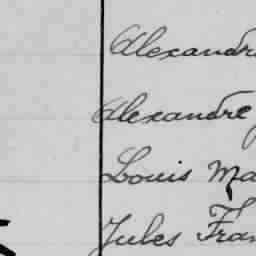 Alexandre
Alexandre
Louis Ma
Jules Fran